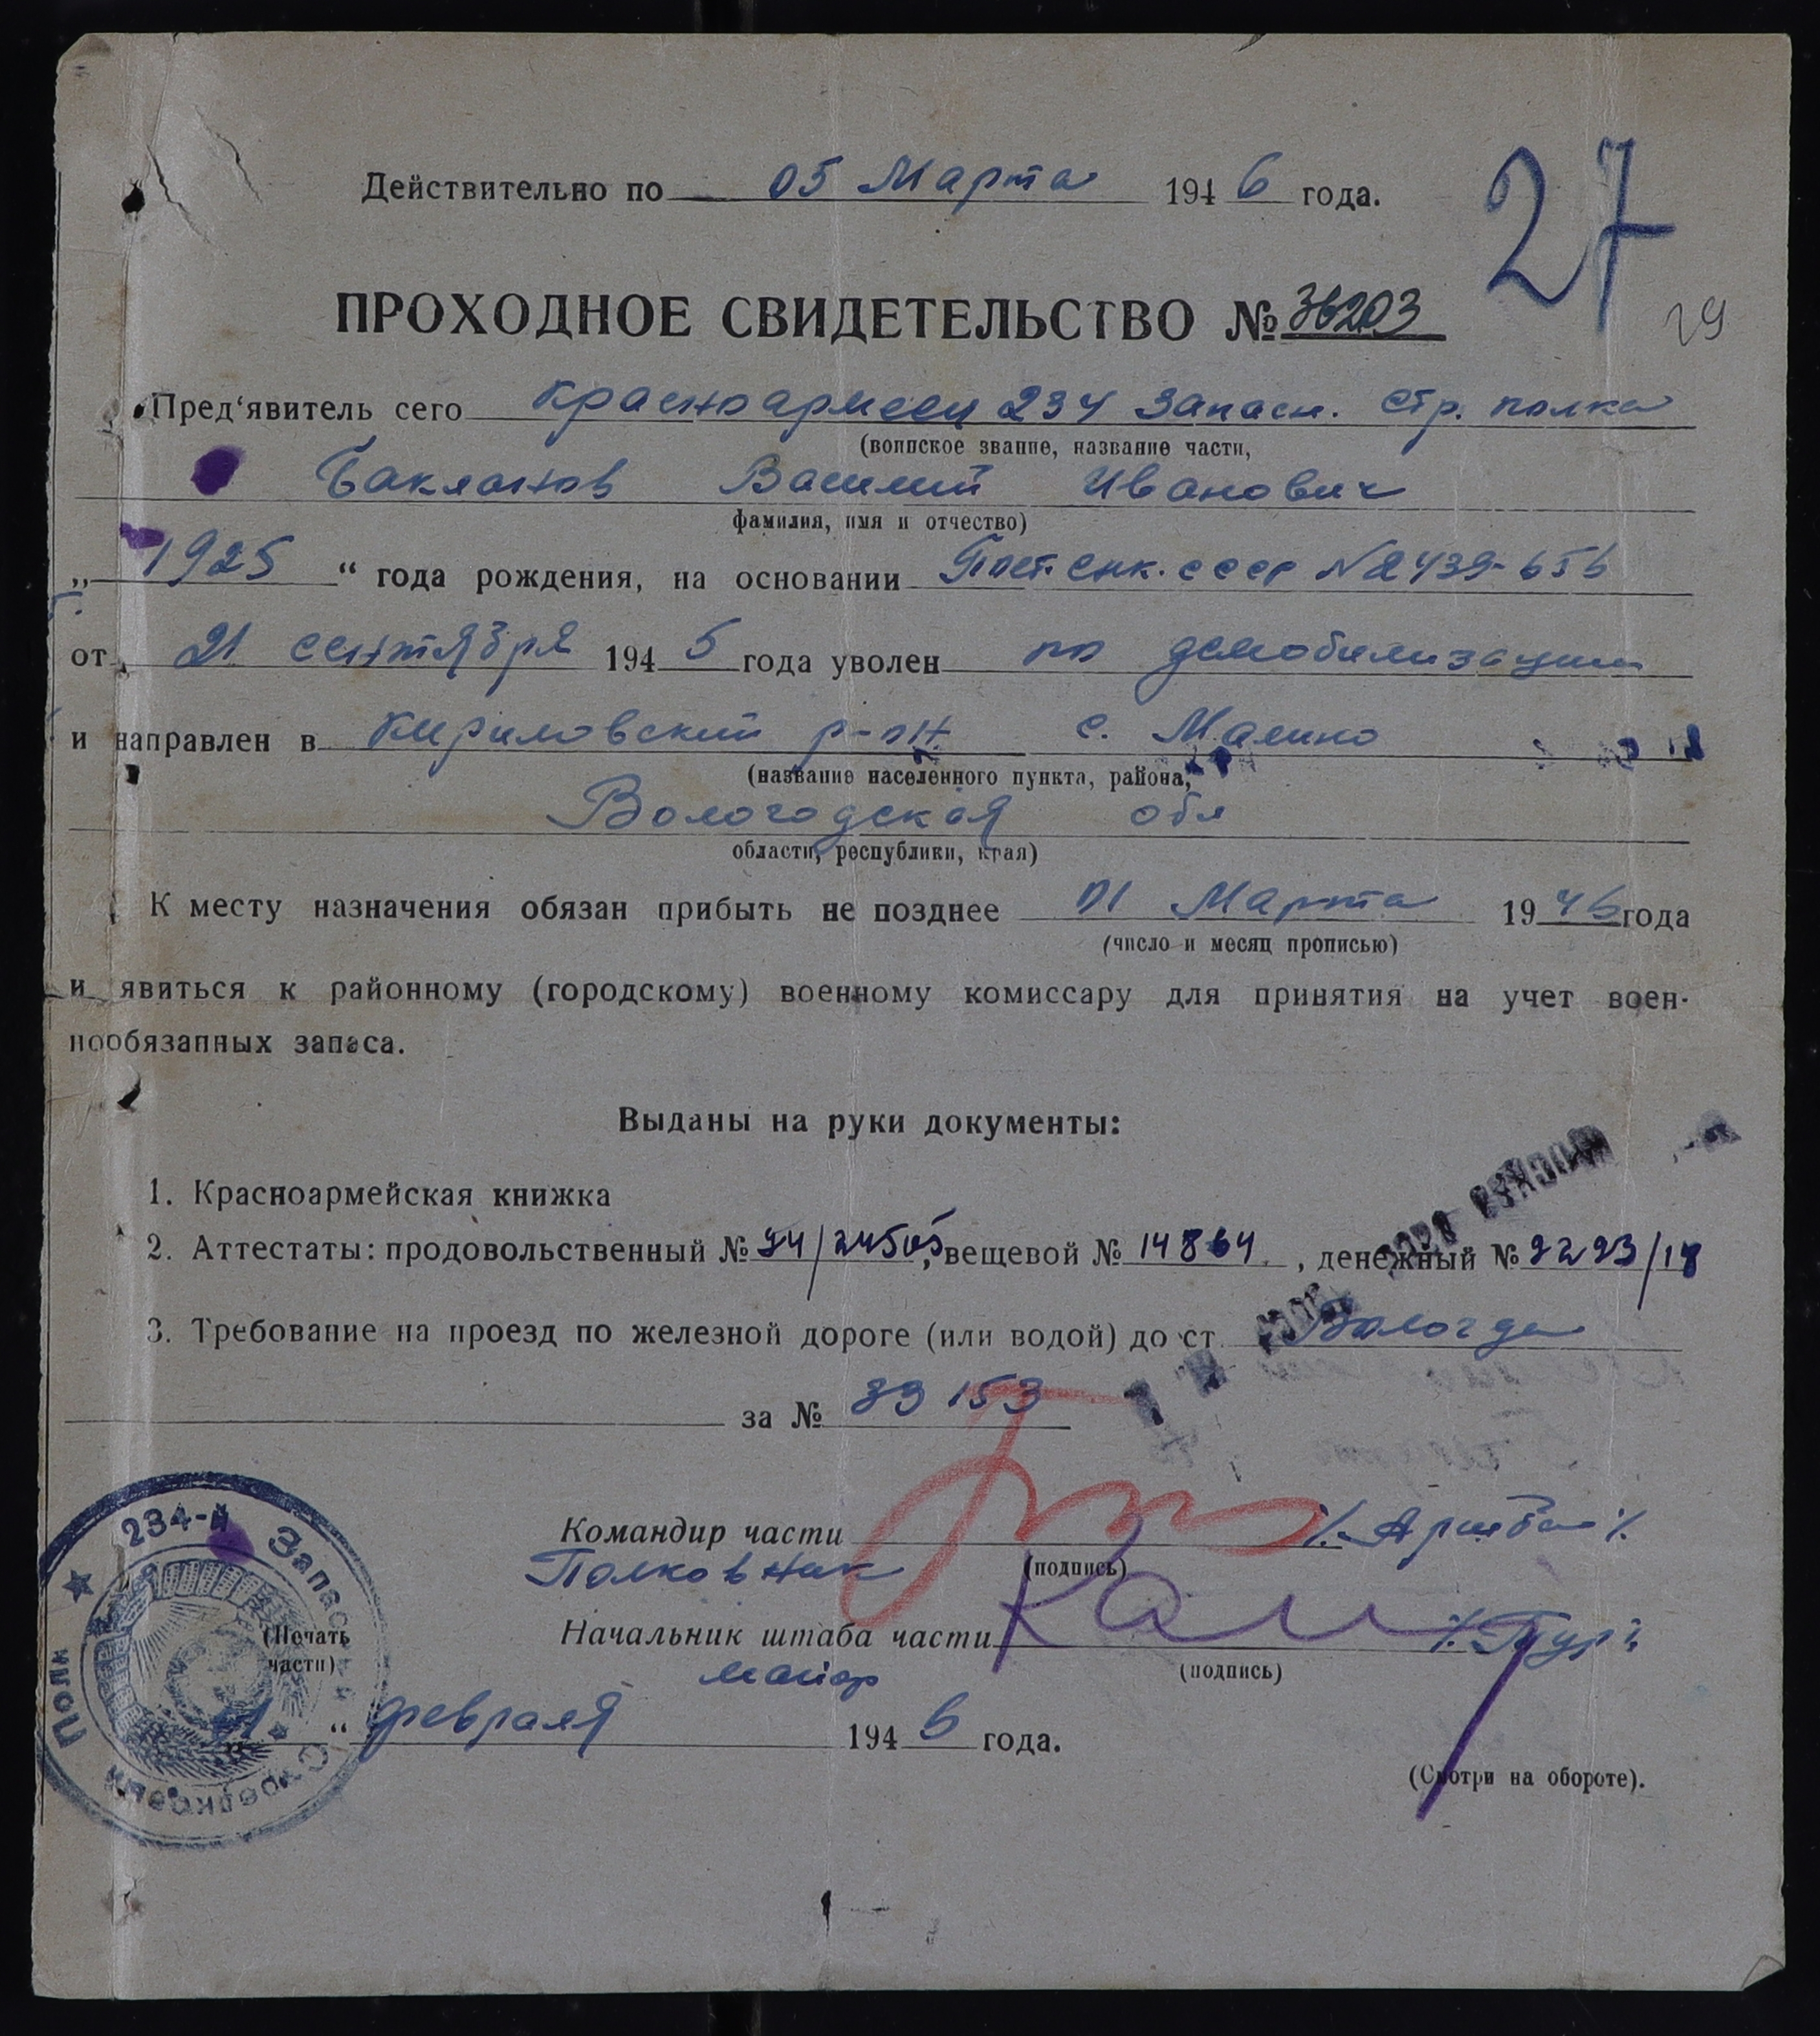 27
Действительно по 05 Марта 1946 года.
ПРОХОДНОЕ СВИДЕТЕЛЬСТВО № 36203
29
Пред‘явитель сего красноармеец 234 запасн. стр. полка
(воинское звание, название части,
Баклонов Василий Иванович
фамилия, имя и отчество)
„1925“ года рождения, на основании Пост. снк. ссср №2439-656
от 21 сентября 1945 года уволен по демобилизации
и направлен в Кириловский р-он. с. Малино
(название населенного пункта, района,
Вологодская обл
области, республики, края)
К месту назначения обязан прибыть не позднее 01 Марта 1946 года
(число и месяц прописью)
и явиться к районному (городскому) военному комиссару для принятия на учет воен-
нообязанных запаса.
Выданы на руки документы:
1. Красноармейская книжка
2. Аттестаты: продовольственный № 94/24505, вещевой № 14864, денежный № 2293/18
3. Требование на проезд по железной дороге (или водой) до ст Вологда
за № 39153
Командир части
Полковник (подпись)
Начальник штаба части
майор (подпись)
234-й Запасной Стрелковый Полк
(Печать
части)
“ февраля 1946 года.
(Смотри на обороте).